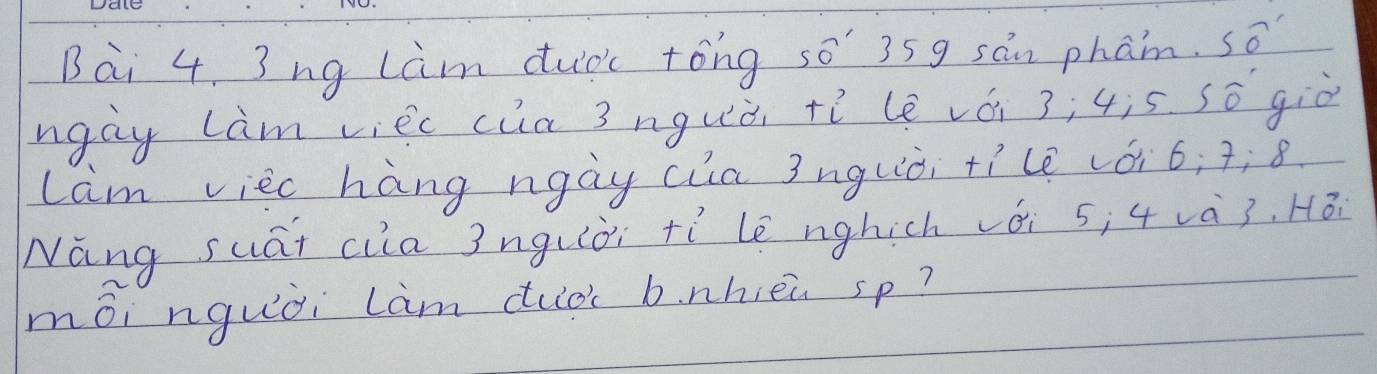 Date No.
Bài 4. 3 ng làm được tổng số 359 sản phẩm. Số
ngày làm việc của 3 người tỉ lệ với 3; 4; 5. Số giờ
làm việc hàng ngày của 3 người tỉ lệ với 6; 7; 8.
Năng suất của 3 người tỉ lệ nghịch với 5; 4 và 3. Hỏi
mỗi người làm được b.nhiêu sp?